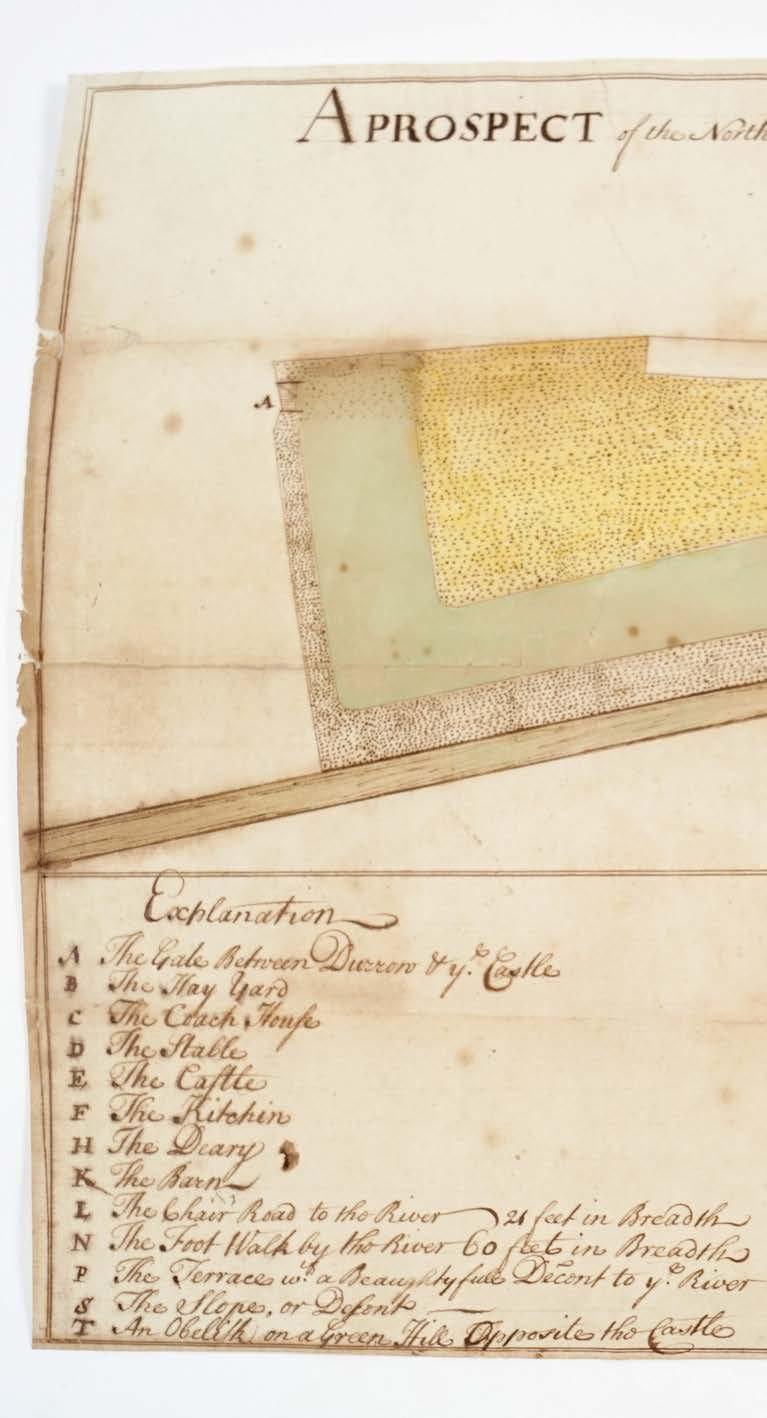 A PROSPECT of the North
A
Explanation
A The Gate Between Durrow & yᵉ. Castle
B The Hay Yard
C The Coach Housе
D The Stable
E The Castle
F The Kitchin
H The Deary
K The Barn
L The Chair Road to the River 21 feet in Breadth
N The Foot Walk by the River 60 feet in Breadth
P The Terrace wᵗʰ a Beaughtyfull Decont to yᵉ. River
S The Slope, or Desont
T An Obelisk on a Green Hill Opposite the Castle